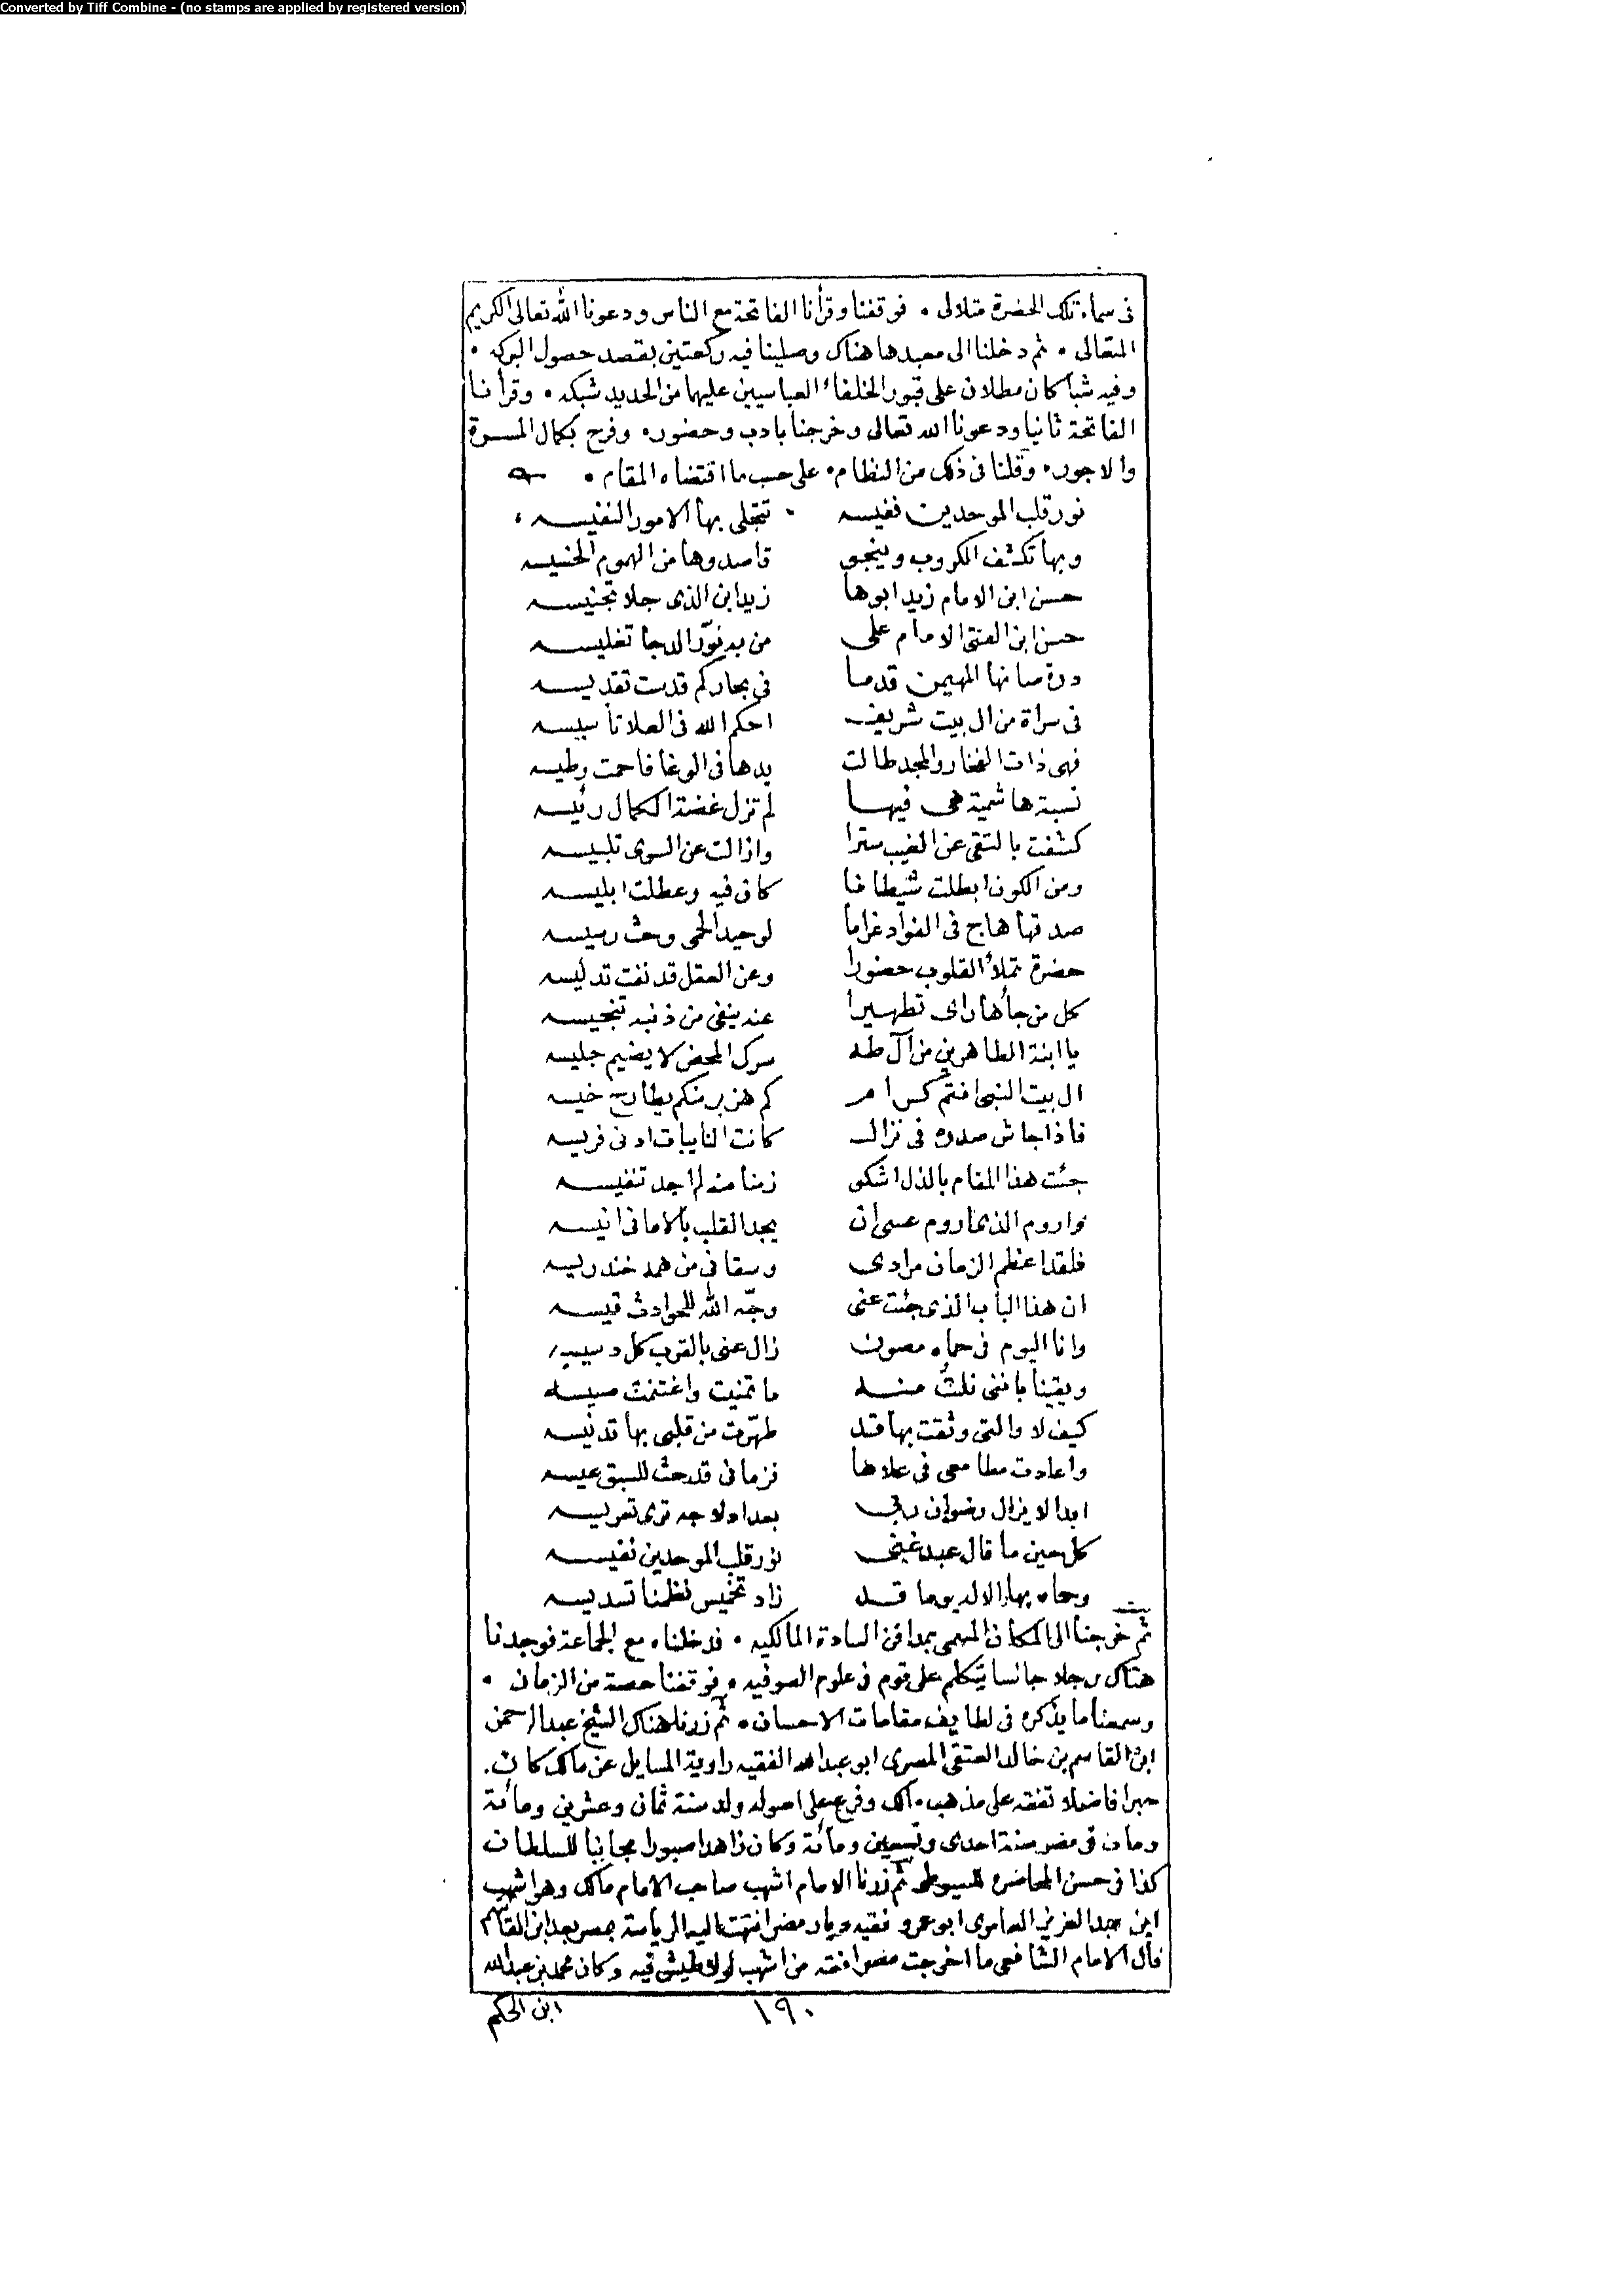 Converted by Tiff Combine - (no stamps are applied by registered version)
فى سماء تلك الحضرة متلالى ٠ فوقفنا وقرأنا الفاتحة مع الناس ودعونا الله تعالى الكريم
المتعالى ٠ ثم دخلنا الى معبدها هناك وصلينا فيه ركعتين بقصد حصول البركه ٠
وفيه شباكان مطلان على قبور الخلفاء العباسيين عليها من الحديد شبكه ٠ وقرأنا
الفاتحة ثانيا ودعونا الله تعالى وخرجنا بادب وحضور ٠ وفرح بكمال المسرة
والاجور ٠ وقلنا فى ذلك من النظام ٠ على حسب ما اقتضاه المقام ٠
نور قلب الموحدين نفيسه تتجلى بها الامور النفيسه
وبها تكشف الكروب وينجو قاصدوها من الهموم الخسيسه
حسن ابن الامام زيد ابوها زيد ابن الذى جلا تجنيسه
حسن ابن الفتى الامام على من به نوّر الدجا تغليسه
درة صانها المهيمن قدما فى بحار كم قدست تقديسه
فى سراة من ال بيت شريف احكم الله فى العلا تاسيسه
فهى ذات الفخار والمجد طالت يدها فى الوغا فاحمت وطيسه
نسبة هاشمية هى فيها لم تزل غضة الكمال رئيسه
كشفت بالتقى عن الغيب سترا وازالت عن السوى تلبيسه
ومن الكون ابطلت شيطانا كان فيه وعطلت ابليسه
صدقها هاج فى الفواد غراما لوحيد الحمى وحث رسيسه
حضرة تملأ القلوب حضورا وعن العقل قد نفت تدليسه
كل من جأها راى تطهيرا عنه ينفى من ذنبه تنجيسه
يا ابنة الطاهرين من آل طه سرك المحض لا يضيم جليسه
ال بيت النبى انتم كرام كم هزبر منكم يطارح خيسه
فاذا جاش صدره فى نزال كانت النايبات ادنى فريسه
جئت هذا المقام بالذل اشكو زمنا منه لم اجد تنفيسه
واروم الذى اروم عسى ان يجد القلب بالامانى انيسه
فلقد اعظم الزمان مرادى وسقانى من همه خندريسه
ان هذا الباب الذى جئت عنى وجّه الله للحوادث قيسه
وانا اليوم فى حماه مصون زال عنى بالقرب كل دسيسه
ويقينا باننى نلتُ منه ما تمنيت واغتنمت مسيسه
كيف لا والتى وثقت بها قد طهّرت من قلبى بها تدنيسه
واعادت مطامعى فى علاها فزمانى قد حث للسبق عيسه
ابدا لا يزال رضوان ربى بعداد لاجه ترى تعريسه
كل حين ما قال عبد غنى نور قلب الموحدين نفيسه
وحماه بها الاله يوما قد زاد تخميس نظمنا تسديسه
ثم خرجنا الى المكان المسمى بمدافن السادة المالكيه ٠ فدخلناه مع الجماعة فوجدنا
هناك رجلا جالسا يتكلم على قوم فى علوم الصوفيه ٠ فوقفنا حصة من الزمان ٠
وسمعنا ما يذكره فى لطايف مقامات الاحسان ٠ ثم زرنا هناك الشيخ عبد الرحمن
ابن القاسم بن خالد العتقى المصرى ابو عبد الله الفقيه راوية المسايل عن مالك كان
حبرا فاضلا تفقه على مذهب مالك وفرع على اصوله ولد سنة ثمان وعشرين ومائة
ومات فى مصر سنة احدى وتسعين ومائة وكان زاهدا صبورا مجانبا للسلطان
كذا فى حسن المحاضره للسيوطى ثم زرنا الامام اشهب صاحب الامام مالك وهو اشهب
ابن عبد العزيز العامرى ابو عمرو فقيه ديار مصر انتهت اليه الرياسة بمصر بعد ابن القاسم
قال الامام الشافعى ما اخرجت مصر افقه من اشهب لولا طيش فيه وكان محمد بن عبد الله
١٩٠
ابن الحكم